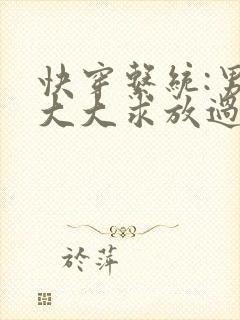 快穿系統:男
大大求放過
於萍